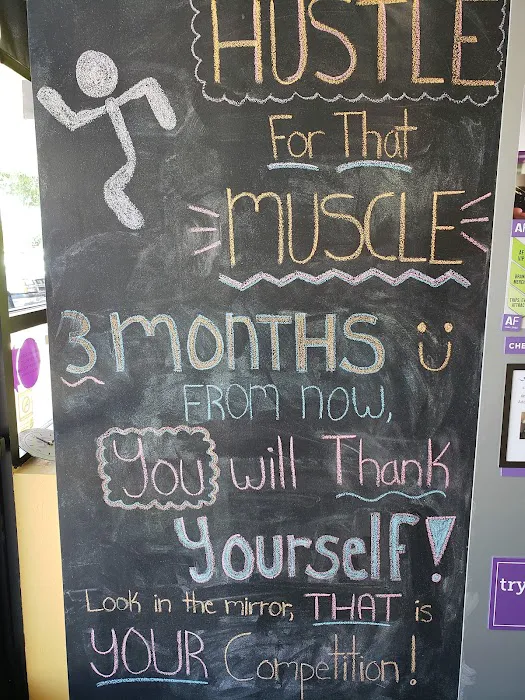 HUSTLE
For That
MUSCLE
3 MONTHS
FROM NOW,
You will Thank
Yourself!
Look in the mirror, THAT is
YOUR Competition!
AF
CHE
try